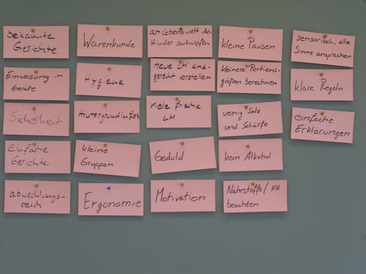 bekannte
Gesichte
Warenkunde
an Lebenswelt der
Kinder anknüpfen
kleine Pausen
sensorisch, alle
Sinne ansprechen
Einweisung in
Geräte
Hygiene
neue LM kind-
gerecht vorstellen
kleinere Portions-
größen berechnen
klare Regeln
Sicherheit
viele frische
LM
wenig Salz
und Schärfe
einfache
Erklärungen
einfache
Gerichte
kleine
Gruppen
Geduld
kein Alkohol
abwechslungs-
reich
Ergonomie
Motivation
Nährstoffe / KH
beachten